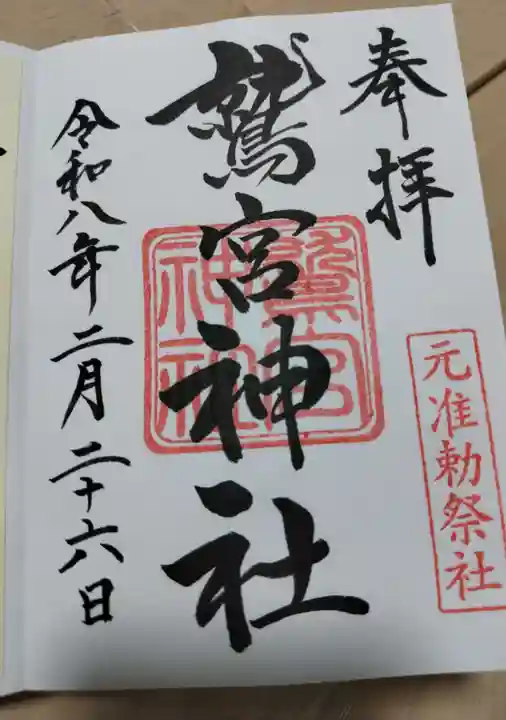 奉拝
元准勅祭社
鷲宮神社
鷲宮
神社
令和八年二月二十六日